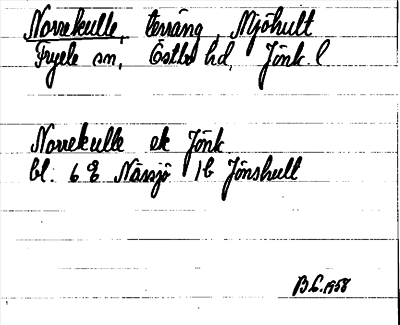 Norrekulle, terräng, Mjöhult
Fryele sn, Östbo hd, Jönk. l
Norrekulle ek Jönk
bl. 6 E Nässjö 1b Jönshult
B.L. 1958